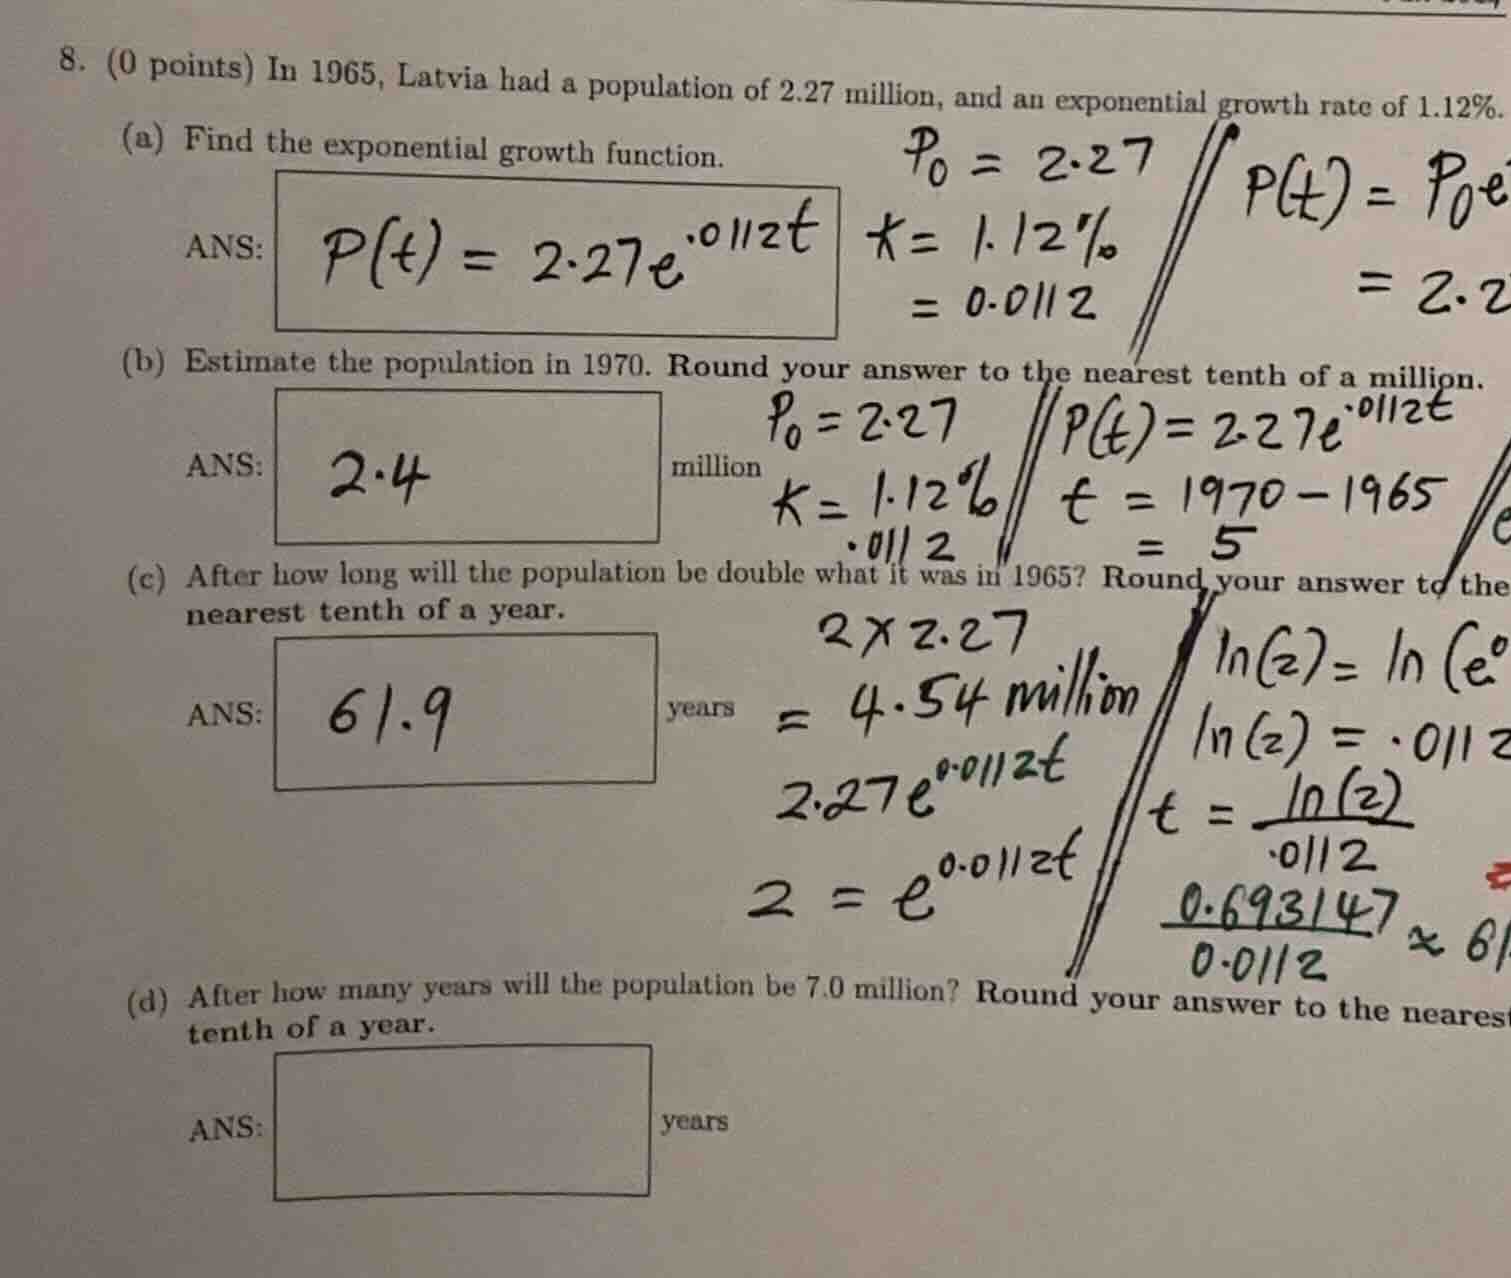 8. (0 points) In 1965, Latvia had a population of 2.27 million, and an exponential growth rate of 1.12%.
(a) Find the exponential growth function.
P₀ = 2.27
K = 1.12%
= 0.0112
P(t) = P₀e
= 2.2
ANS: P(t) = 2.27e^.0112t
(b) Estimate the population in 1970. Round your answer to the nearest tenth of a million.
ANS: 2.4 million
P₀ = 2.27
K = 1.12%
.0112
P(t) = 2.27e^.0112t
t = 1970 - 1965
= 5
(c) After how long will the population be double what it was in 1965? Round your answer to the
nearest tenth of a year.
ANS: 61.9 years
2 × 2.27
= 4.54 million
2.27e^0.0112t
2 = e^0.0112t
ln(2) = ln(e^0
ln(2) = .0112
t = ln(2)/.0112
0.693147/0.0112 ≈ 61
(d) After how many years will the population be 7.0 million? Round your answer to the nearest
tenth of a year.
ANS: years